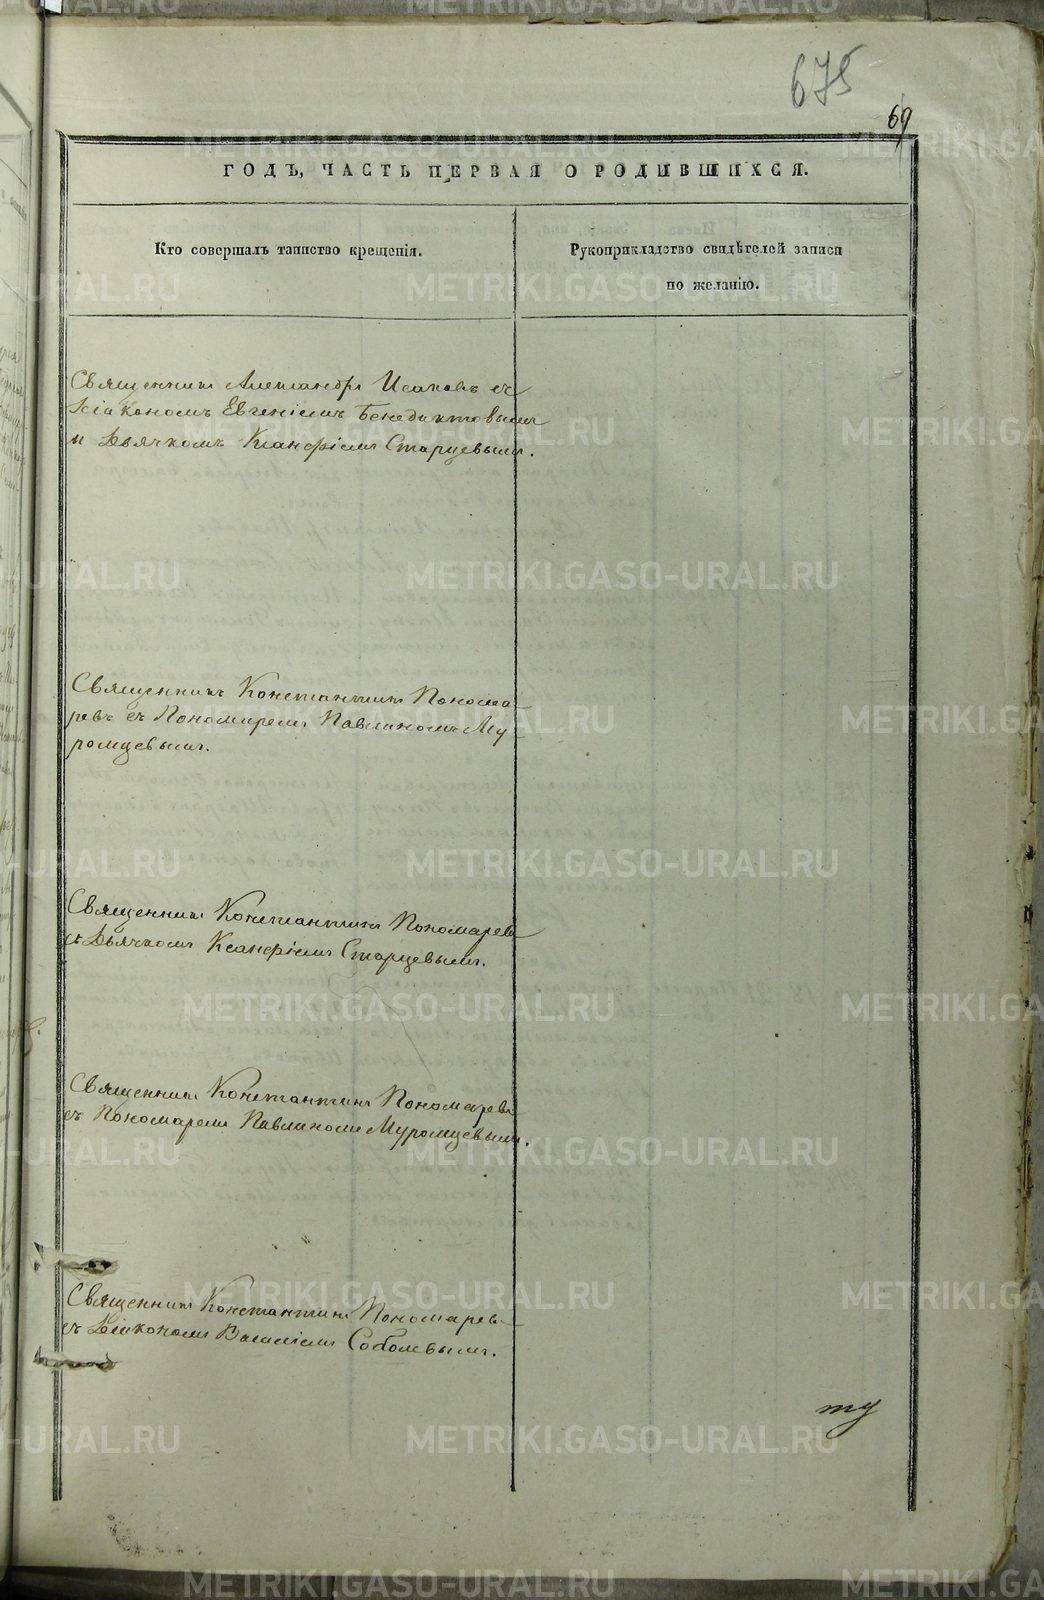 675
69
ГОДЪ, ЧАСТЬ ПЕРВАЯ О РОДИВШИХСЯ.
Кто совершалъ таинство крещенія.
Рукоприкладство свидѣтелей записи
по желанію.
Священникъ Александръ Исаковъ съ
Діакономъ Евгеніемъ Бенедиктовымъ
и Дьячкомъ Ксанфіемъ Старцевымъ.
Священникъ Константинъ Понома-
ревъ съ Пономаремъ Павлиномъ Му
ромцевымъ.
Священникъ Константинъ Пономаревъ
съ Дьячкомъ Ксанфіемъ Старцевымъ.
Священникъ Константинъ Пономаревъ
съ Пономаремъ Павлиномъ Муромцевымъ.
Священникъ Константинъ Пономаревъ
съ Діакономъ Василіемъ Соболевымъ.
METRIKI.GASO-URAL.RU